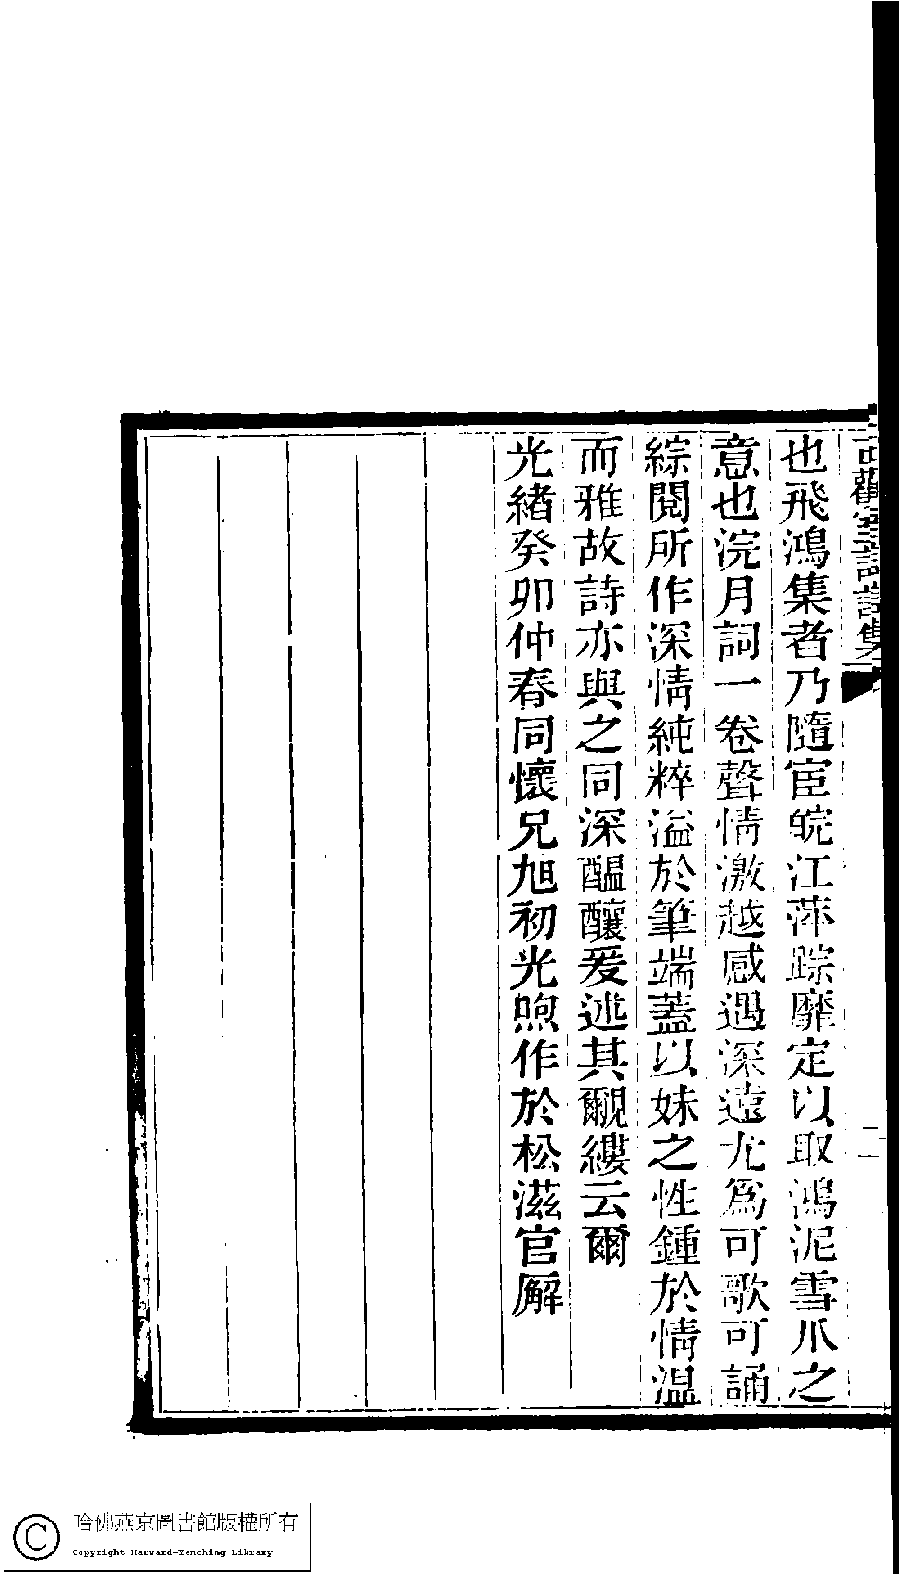 可觀室詩詞集
二
也飛鴻集者乃隨宦皖江萍踪靡定以取鴻泥雪爪之
意也浣月詞一卷聲情激越感遇深遠尤為可歌可誦
綜閱所作深情純粹溢於筆端蓋以妹之性鍾於情溫
而雅故詩亦與之同深醞釀爰述其覼縷云爾
光緒癸卯仲春同懷兄旭初光煦作於松滋官廨
哈佛燕京圖書館版權所有
Copyright Harvard-Yenching Library